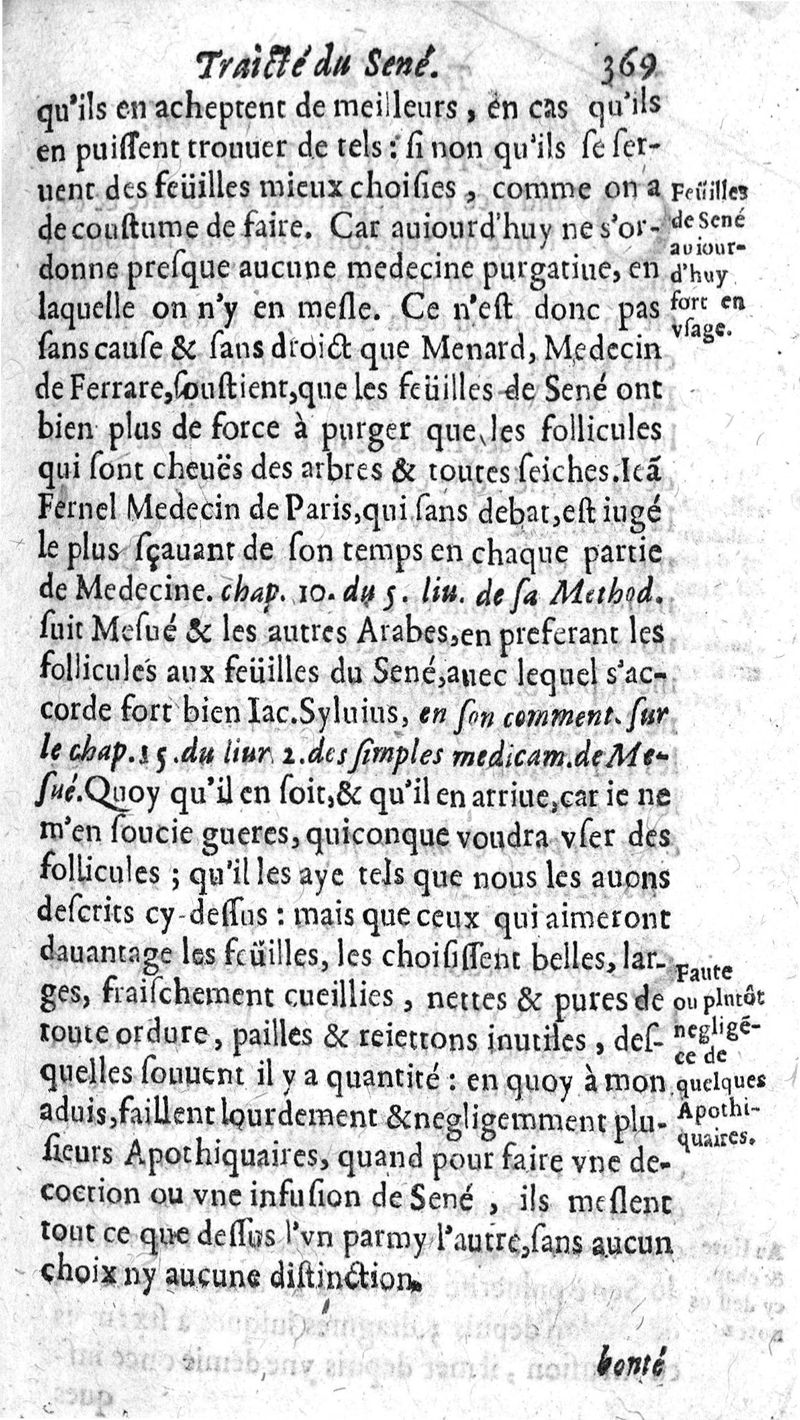 Traicté du Sené. 369
qu'ils en acheptent de meilleurs, en cas qu'ils
en puiſſent trouuer de tels : ſi non qu'ils ſe ſer-
uent des feüilles mieux choiſies, comme on a
de couſtume de faire. Car auiourd'huy ne s'or-
donne preſque aucune medecine purgatiue, en
laquelle on n'y en meſle. Ce n'eſt donc pas
ſans cauſe & ſans droict que Menard, Medecin
de Ferrare, ſouſtient, que les feüilles de Sené ont
bien plus de force à purger que les follicules
qui ſont cheuës des arbres & toutes ſeiches. Ieã
Fernel Medecin de Paris, qui ſans debat, eſt iugé
le plus ſçauant de ſon temps en chaque partie
de Medecine. chap. 10. du 5. liu. de ſa Method.
ſuit Meſué & les autres Arabes, en preferant les
follicules aux feüilles du Sené, auec lequel s'ac-
corde fort bien Iac. Syluius, en ſon comment. ſur
le chap. 15. du liur. 2. des ſimples medicam. de Me-
ſué. Quoy qu'il en ſoit, & qu'il en arriue, car ie ne
m'en ſoucie gueres, quiconque voudra vſer des
follicules ; qu'il les aye tels que nous les auons
deſcrits cy-deſſus : mais que ceux qui aimeront
dauantage les feüilles, les choiſiſſent belles, lar-
ges, fraiſchement cueillies, nettes & pures de
toute ordure, pailles & reiettons inutiles, deſ-
quelles ſouuent il y a quantité : en quoy à mon
aduis, faillent lourdement & negligemment plu-
ſieurs Apothiquaires, quand pour faire vne de-
coction ou vne infuſion de Sené, ils meſlent
tout ce que deſſus l'vn parmy l'autre, ſans aucun
choix ny aucune diſtinction.
Feüilles
de Sené
auiour-
d'huy
fort en
vſage.
Faute
ou plutôt
negligẽ-
ce de
quelques
Apothi-
quaires.
bonté